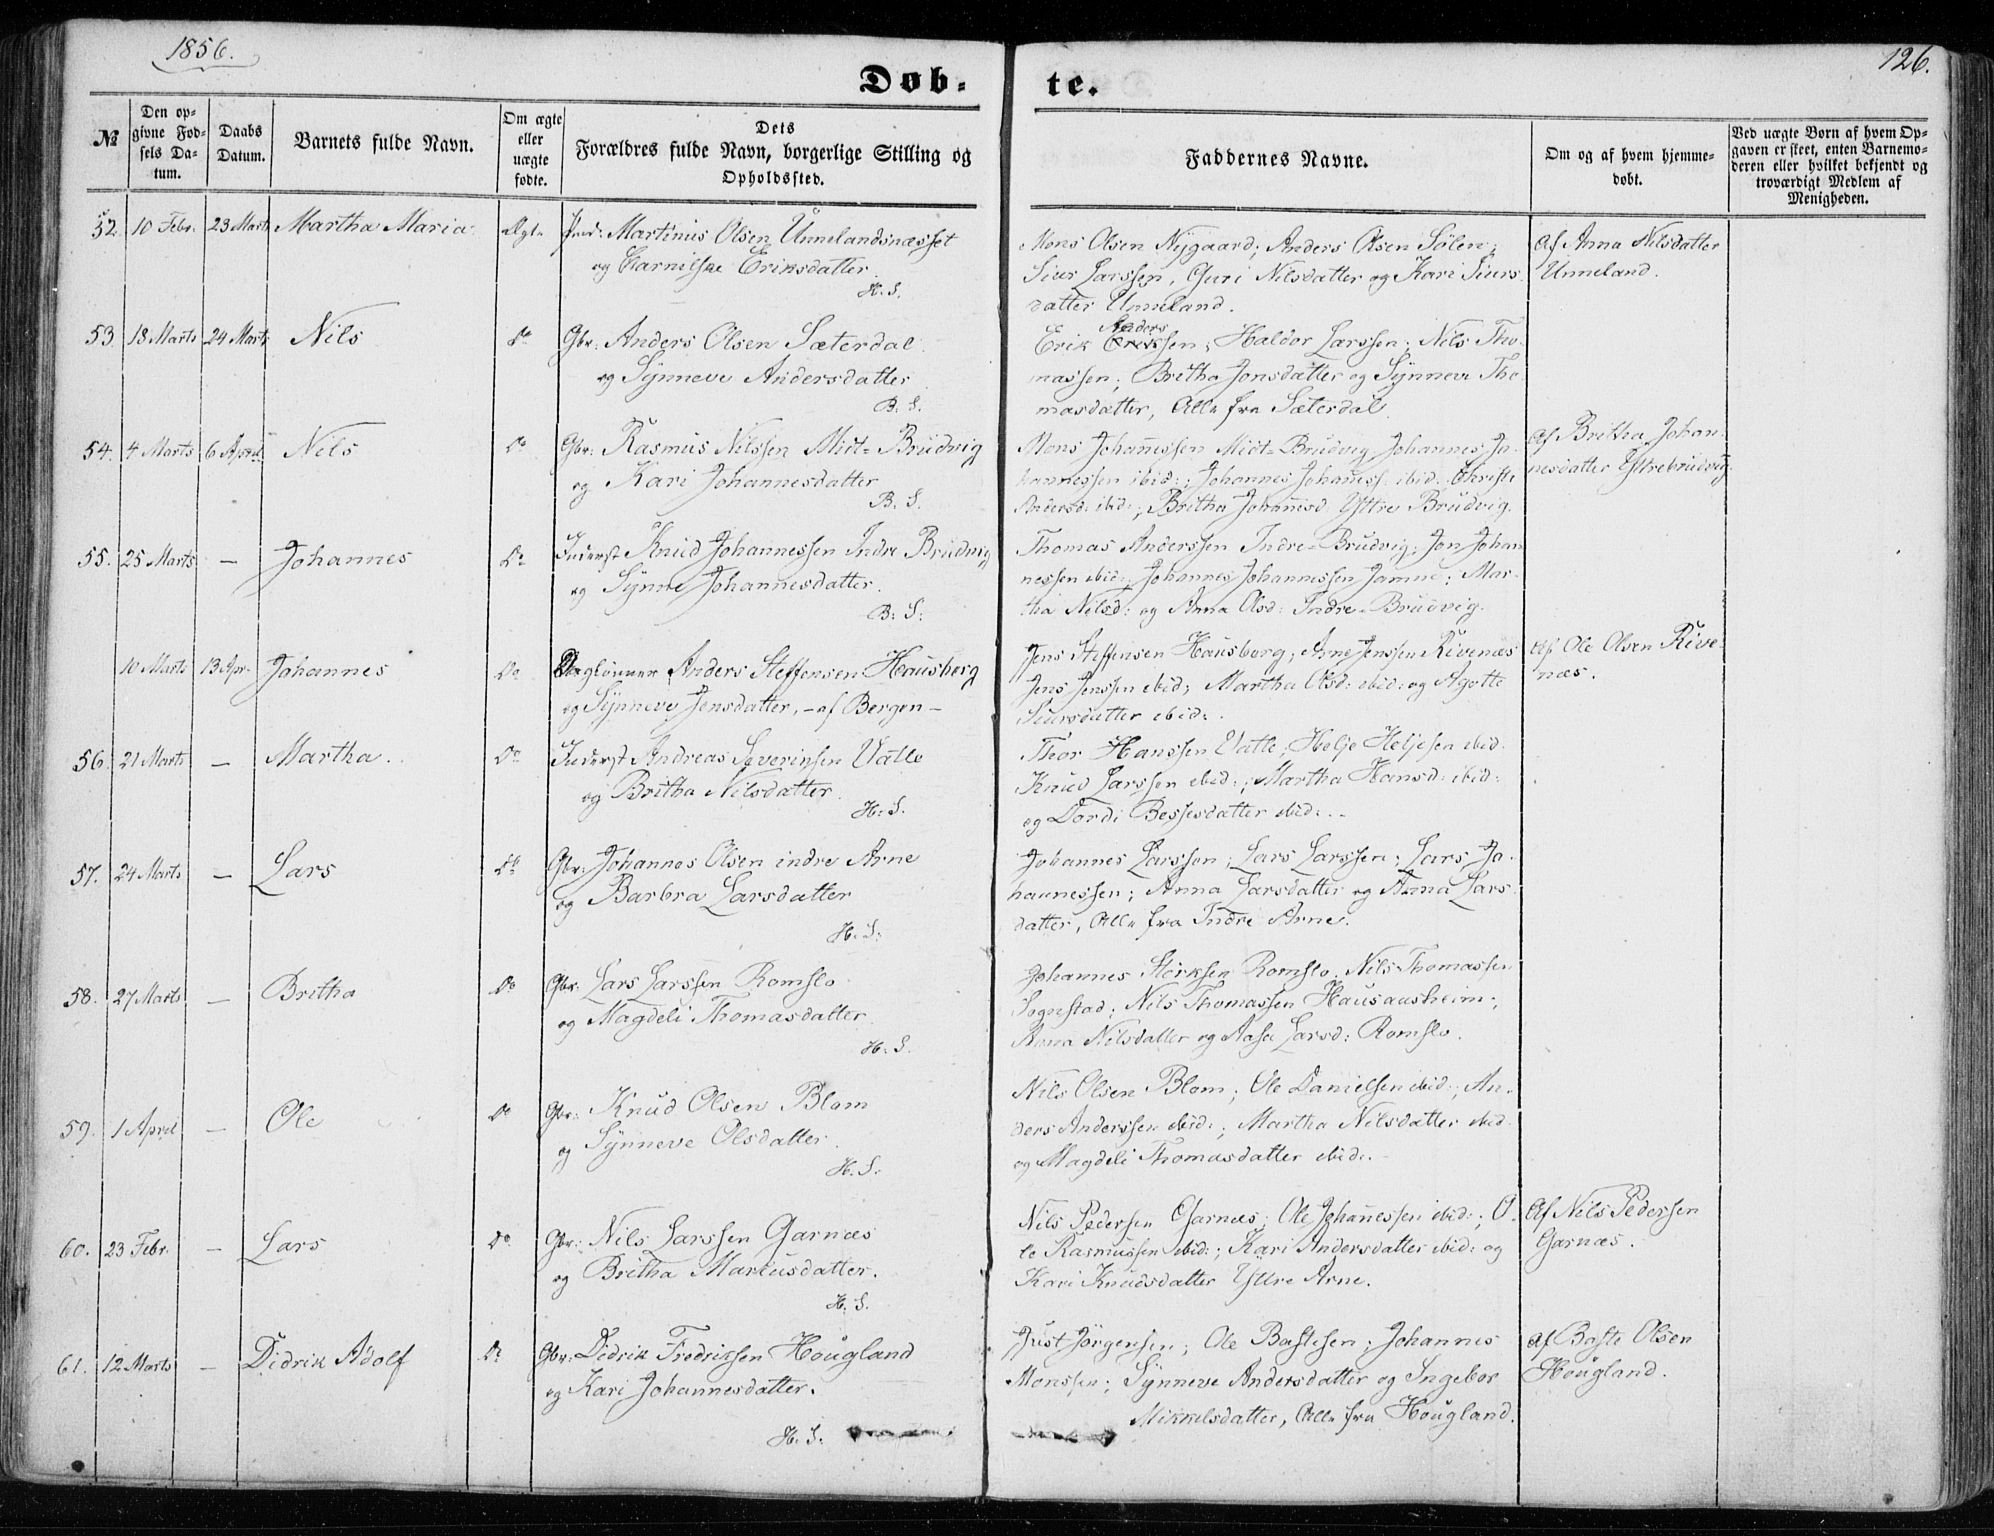 1856.
126.
Døb-
te.
№
Den op-
givne Fød-
sels Da-
tum.
Daabs
Datum.
Barnets fulde Navn.
Om ægte
eller
uægte
fødte.
Dets
Forældres fulde Navn, borgerlige Stilling og
Opholdssted.
Faddernes Navne.
Om og af hvem hjemme-
døbt.
Ved uægte Børn af hvem Op-
gaven er skeet, enten Barnemo-
deren eller hvilket bekjendt og
troværdigt Medlem af
Menigheden.
52. 10 Febr. 23 Marts Martha Maria Ægte Martinus Olsen Unnelandsnæsset
og Eriksdatter.
H. S.
Mons Olsen Nygaard; Anders Olsen Sølen;
Siur Larssen, Guri Nilsdatter og Kari Siurs-
datter Unneland.
Af Anna Nilsdatter
Unneland.
53 18 Marts 24 Marts Nils Do Gbr: Anders Olsen Sæterdal
og Synneve Andersdatter
B. S.
Anders
Erik Erikssen; Haldor Larssen; Nils Tho-
massen; Britha Jonsdatter og Synneve Tho-
masdatter, Alle fra Sæterdal.
54. 4 Marts 6 April Nils Do Gbr: Rasmus Nilssen Midt-Brudvig
og Kari Johannesdatter
B. S.
Mons Johanessen Midt-Brudvig, Johannes Jo-
hannessen ibid:; Johannes Johaness: ibid: Christe
Andersd: ibid:; Britha Johanesd Yttre Brudvig.
Af Britha Johan-
nesdatter Yttrebrudvig.
55. 25 Marts — Johannes Do Inderst Knud Johannessen Indre Brudvig
og Synne Johannesdatter.
B: S:
Thomas Anderssen Indre-Brudvig; Jon Johan-
nessen ibid:; Johannes Johannessen Jamne; Mar-
tha Nilsd: og Anna Olsd: Indre-Brudvig.
10 Marts 13 Apr. Johannes Do Daglønner Anders Steffensen Hausberg
og Synneve Jensdatter, - af Bergen -
Jens Steffensen Hausberg; Arne Jenssen Rivenæs
Jens Jenssen ibid; Martha Olsd: ibid: og Agotte
Siursdatter ibid:.
Af Ole Olsen Rive-
næs.
56. 21 Marts — Martha. Do Inderst Andreas Severinsen Vatle
og Britha Nilsdatter.
H: S.
Thor Hanssen Vatle; Helje Heljesen ibid.
Knud Larssen ibid:; Martha Hansd: ibid:
og Dordi Bessesdatter ibid:.
57. 24 Marts — Lars Do Gbr: Johannes Olsen indre Arne
og Barbra Larsdatter
H. S:
Johannes Larssen; Lars Larssen; Lars Jo-
hannessen; Anna Larsdatter og Anna Lars-
datter, Alle fra Indre Arne.
58. 27 Marts — Britha Do Gbr: Lars Larssen Romslo
og Magdeli Thomasdatter
H: S.
Johannes Størksen Romslo; Nils Thomassen
Sognstad; Nils Thomassen Hausausheim;
Anna Nilsdatter og Aase Larsd: Romslo.
59. 1 April — Ole Do Gbr: Knud Olsen Blom
og Synneve Olsdatter.
H. S.
Nils Olsen Blom; Ole Danielsen ibid:; An-
ders Anderssen ibid:; Martha Nilsdatter ibid
og Magdeli Thomasdatter ibid:.
60. 23 Febr. — Lars Do Gbr: Nils Larssen Garnæs
og Britha Markusdatter.
H. S.
Nils Pedersen Garnæs; Ole Johanessen ibid:; O-
le Rasmussen ibid:; Kari Andersdatter ibid: og
Kari Knudsdatter Yttre Arne.
Af Nils Pedersen
Garnæs.
61. 12 Marts — Didrik Adolf Do Gbr: Didrik Fredriksen Hougland
og Kari Johannesdatter.
H. S:
Just Jørgensen; Ole Bastesen; Johannes
Monssen; Synneve Andersdatter og Ingebor
Mikkelsdatter, Alle fra Hougland.
Af Baste Olsen
Hougland.